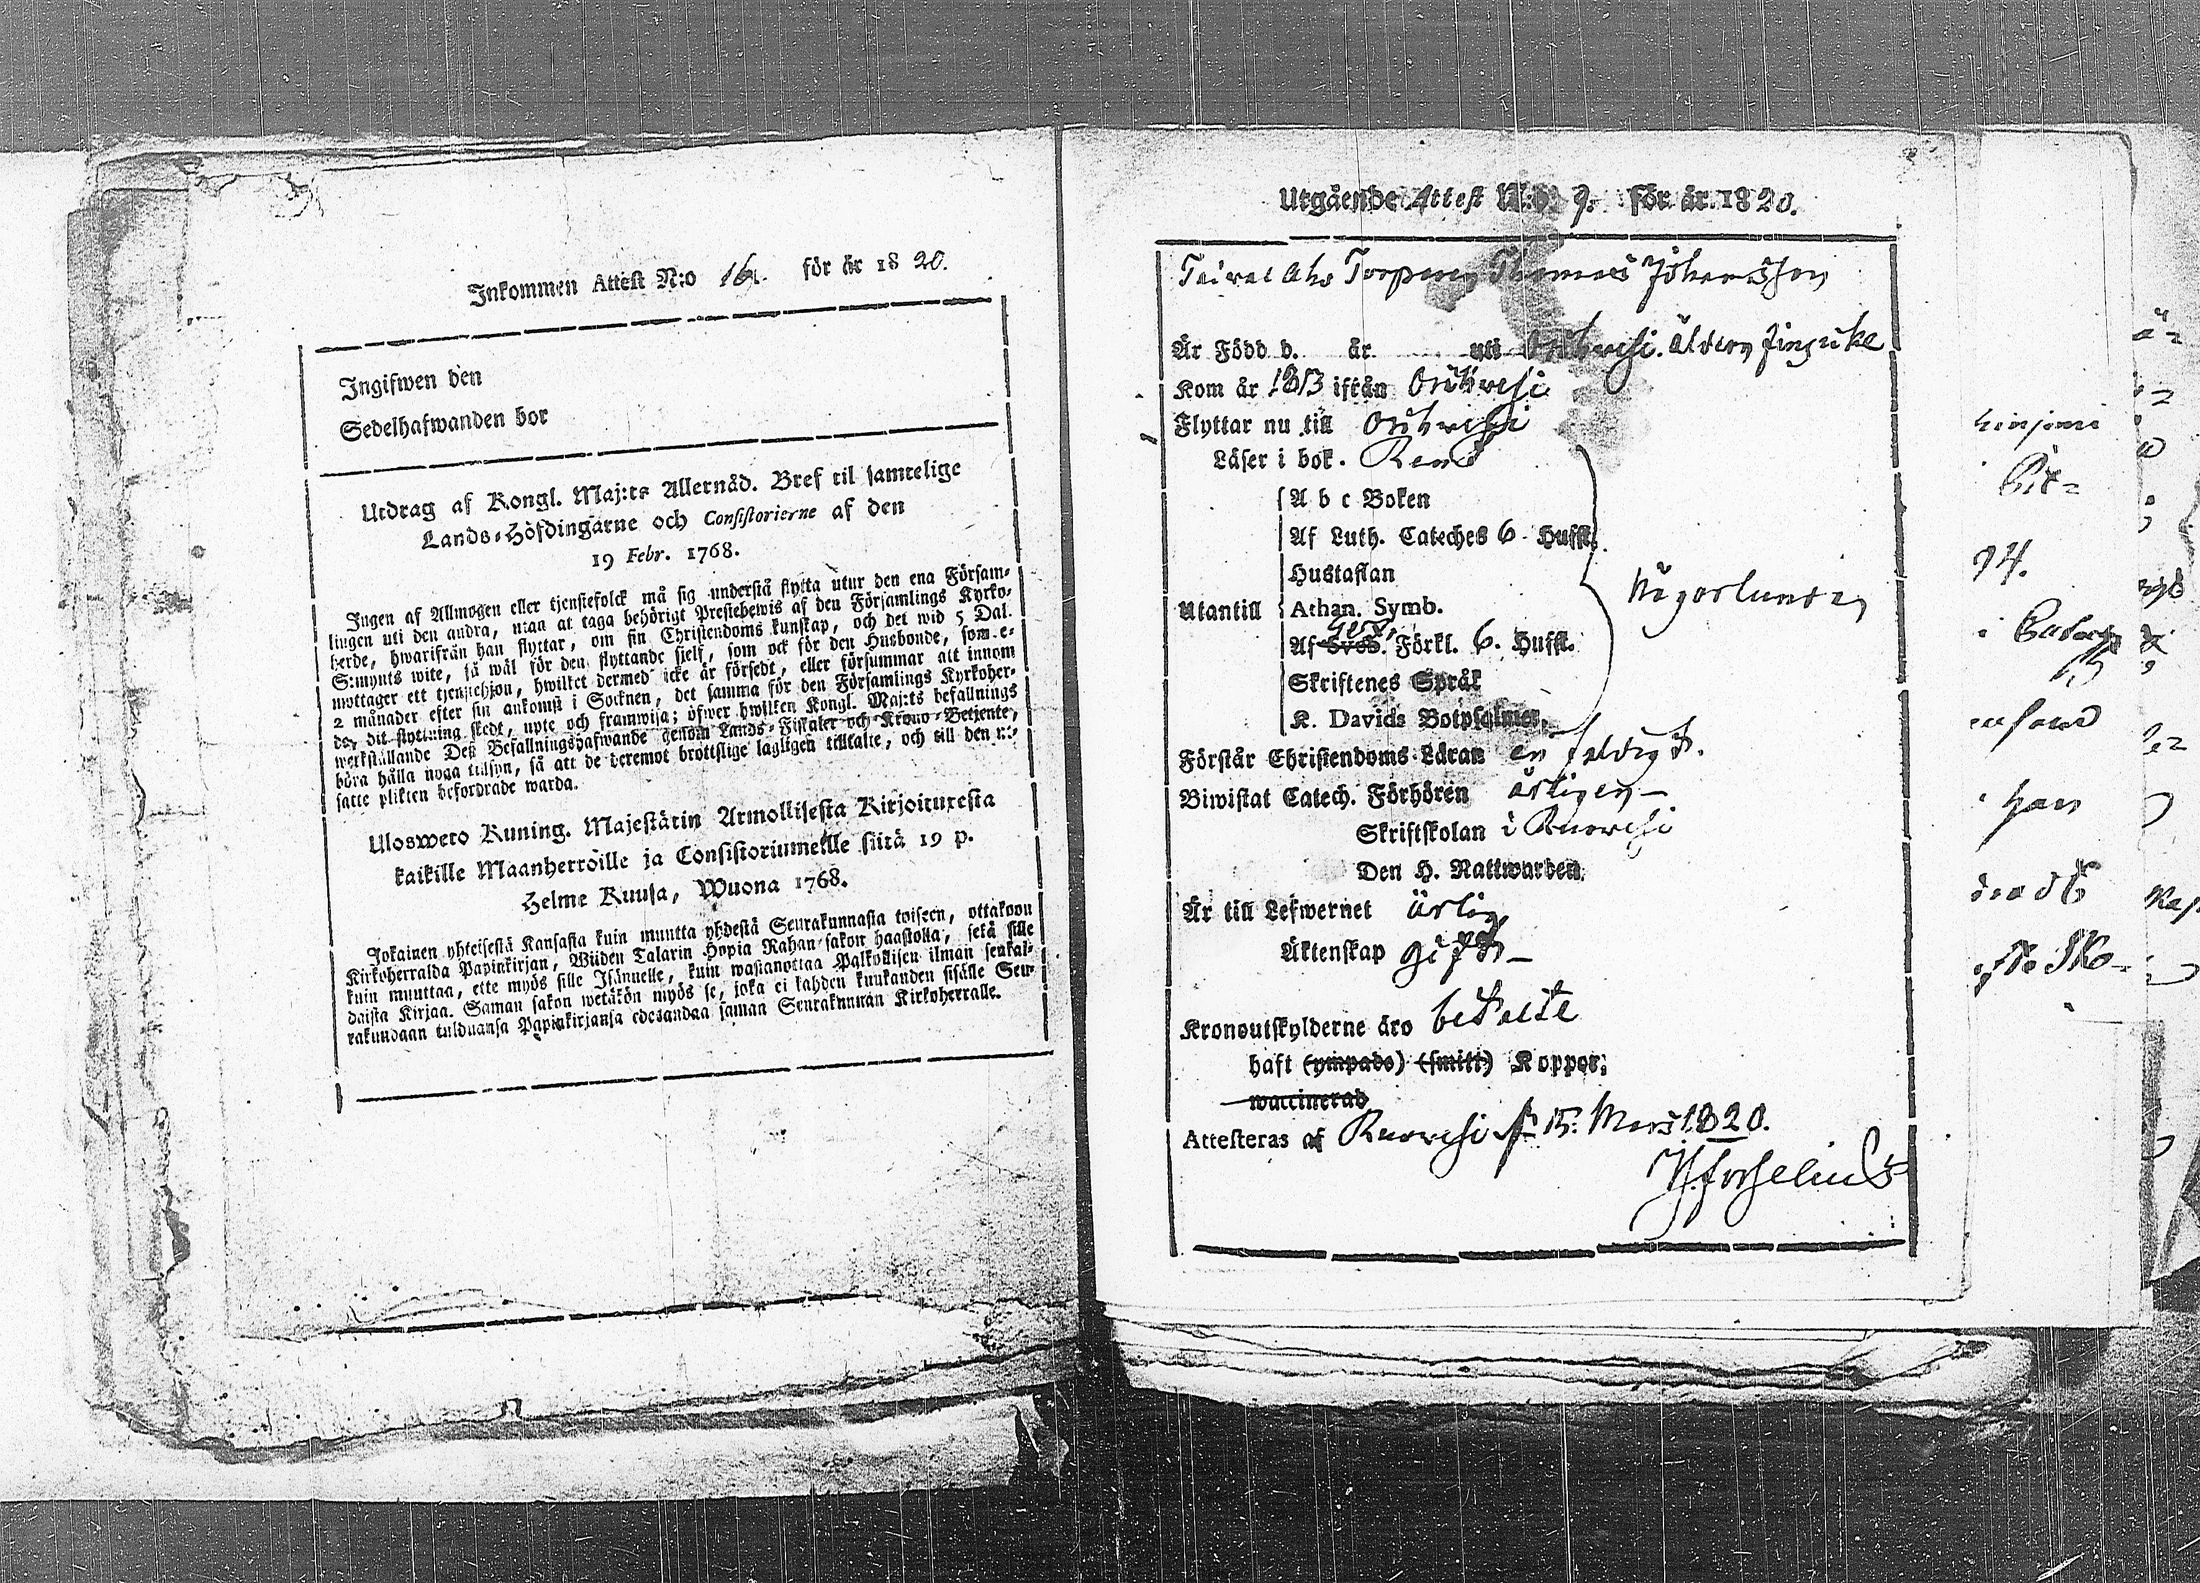 Inkommen Attest N:o 16. för år 1820.
Ingifwen den
Sedelhafwanden bor
Utdrag af Kongl. Maj:ts Allernåd. Bref til samtelige
Lands-Höfdingarne och Consistorierne af den
19 Febr. 1768.
Ingen af Allmogen eller tjenstefolck må sig understå flytta utur den ena Försam-
lingen uti den andra, utan at taga behörigt Prestebewis af den Församlings Kyrko-
herde, hwarifrån han flyttar, om sin Christendoms kunskap, och det wid 5 Dal.
S:mynts wite, så wäl för den flyttande sjelf, som ock för den Husbonde, som e-
mottager ett tjenstehjon, hwilket dermed icke är försedt, eller försummar att innom
2 månader efter sin ankomst i Socknen, det samma för den Församlings Kyrkoher-
de, dit flyttning skedt, upte och framwisa; öfwer hwilken Kongl. Maj:ts befallnings
werkställande Deß Befallningshafwande genom Lands-Fiskaler och Krono-Betjente,
böra hålla noga tillsyn, så att de deremot brottslige lagligen tilltalte, och till den ut-
satte plikten befordrade warda.
Ulosweto Kuning. Majestätin Armollisesta Kirjoituxesta
kaikille Maanherroille ja Consistoriumeille siitä 19 p.
Helme Kuusa, Wuona 1768.
Jokainen yhteisestä Kansasta kuin muutta yhdestä Seurakunnasta toiseen, ottakoon
Kirkoherralda Papinkirjan, Wiiden Talarin Hopia Rahan sakon haastolla, sekä sille
kuin muuttaa, ette myös sille Isännelle, kuin wastanottaa Palkollisen ilman senkal-
daista Kirjaa. Saman sakon wetäkön myös se, joka ei kahden kuukanden sisälle Seu-
rakundaan tulduansa Papinkirjansa edesandaa saman Seurakunnan Kirkoherralle.
Utgående Attest N:o 9. för år 1820.
Torparen Thomas Johansson
Är Född d. år uti Orihvesi. åldern
Kom år 1813 ifrån Orihvesi
Flyttar nu till Orihvesi
Läser i bok. Rent
A b c Boken
Af Luth. Cateches 6 Hufst.
Hustaflan
Utantill Athan. Symb.
Af Sveb. Förkl. 6. Hufst.
någorlunda
Skriftenes Språk
K. Davids Botpsalmer.
Förstår Christendoms Läran enfaldigt.
Biwistat Catech. Förhören årligen
Skriftskolan i Ruovesi
Den H. Nattwarden
Är till Lefwernet ärlig
Äktenskap gift
Kronoutskylderne äro betalte
haft (ympade) (smitt) Koppor;
waccinerad
Attesteras af Ruovesi d. 15. Mars 1820.
94.
han